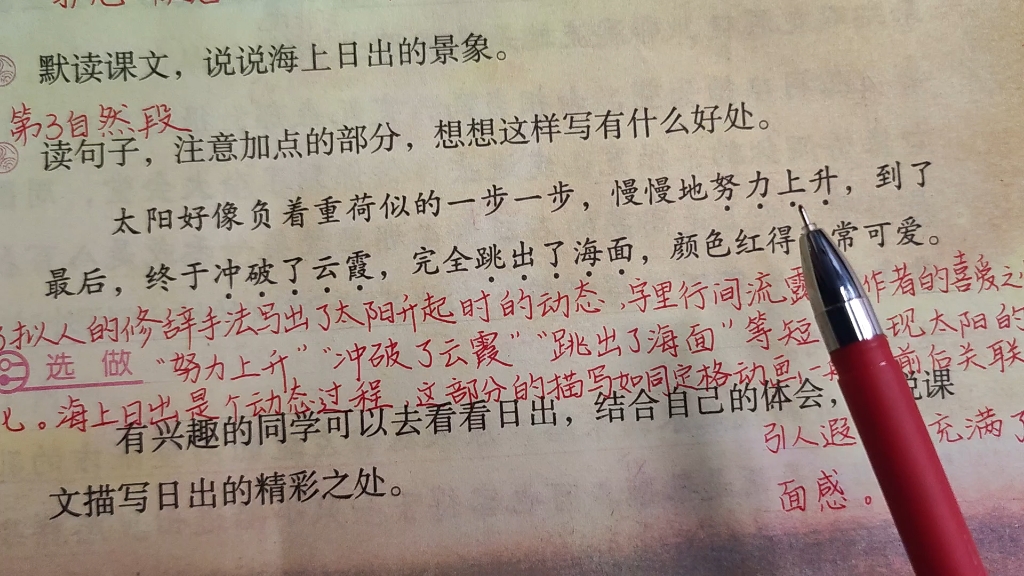 默读课文，说说海上日出的景象。
第3自然段
读句子，注意加点的部分，想想这样写有什么好处。
太阳好像负着重荷似的一步一步，慢慢地努力上升，到了
最后，终于冲破了云霞，完全跳出了海面，颜色红得 常可爱。
拟人的修辞手法写出了太阳升起时的动态，字里行间流露 作者的喜爱之
选做 "努力上升" "冲破了云霞" "跳出了海面" 等短 现太阳的
。海上日出是个动态过程，这部分的描写如同定格动画， 前后关联
有兴趣的同学可以去看看日出，结合自己的体会， 说课
引人遐 充满了
文描写日出的精彩之处。
面感。